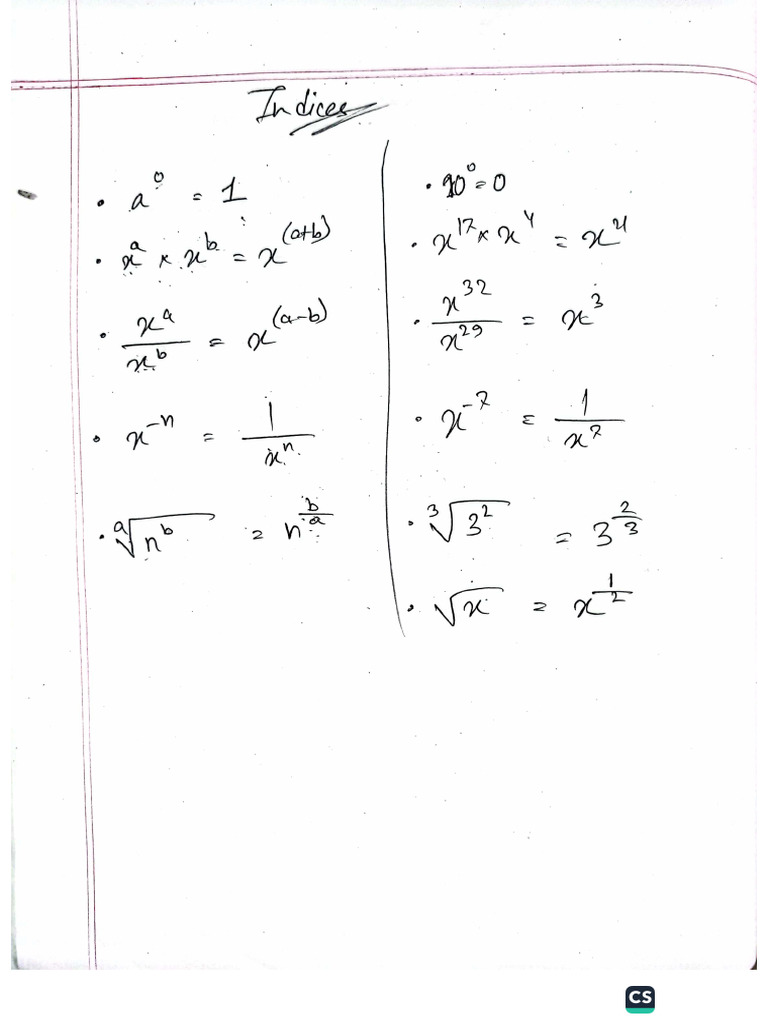 Indices
• a⁰ = 1
• xᵃ × xᵇ = x⁽ᵃ⁺ᵇ⁾
• xᵃ/xᵇ = x⁽ᵃ⁻ᵇ⁾
• x⁻ⁿ = 1/xⁿ
• ᵃ√nᵇ = n^(b/a)
• 10⁰ = 0
• x¹⁷ × x⁴ = x²¹
• x³²/x²⁹ = x³
• x⁻⁷ = 1/x⁷
• ³√3² = 3^(2/3)
• √x = x^(1/2)
CS